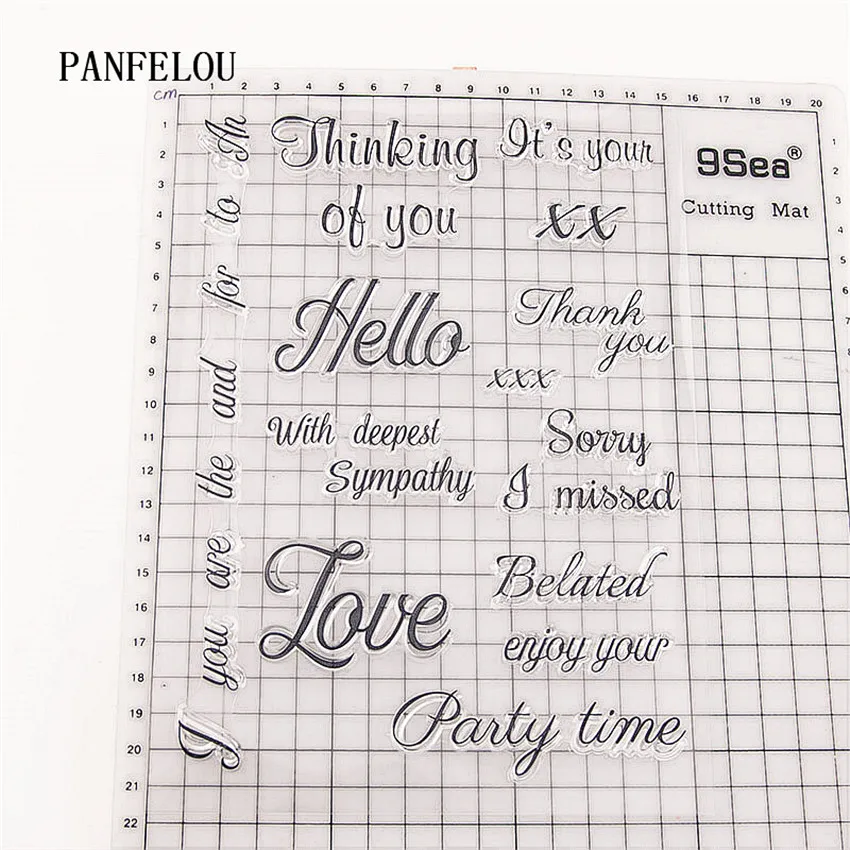 PANFELOU
cm 1 2 3 4 5 6 7 8 9 10 11 12 13 14 15 16 17 18 19 20
9Sea®
Cutting Mat
Thinking
of you
It's your
xx
Hello
Thank
you
xxx
With deepest
Sympathy
Sorry
I missed
Love
Belated
enjoy your
Party time
I you are the and for to An
1
2
3
4
5
6
7
8
9
10
11
12
13
14
15
16
17
18
19
20
21
22
1
2
3
4
5
6
7
8